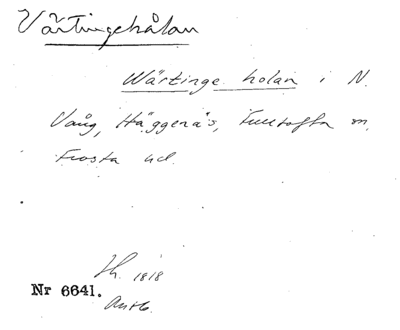 Värtingehålan
Wärtinge holan i N.
Vång, Häggenäs, Fulltofta sn,
Frosta hd.
Lh. 1818
Nr 6641.
Ant6.